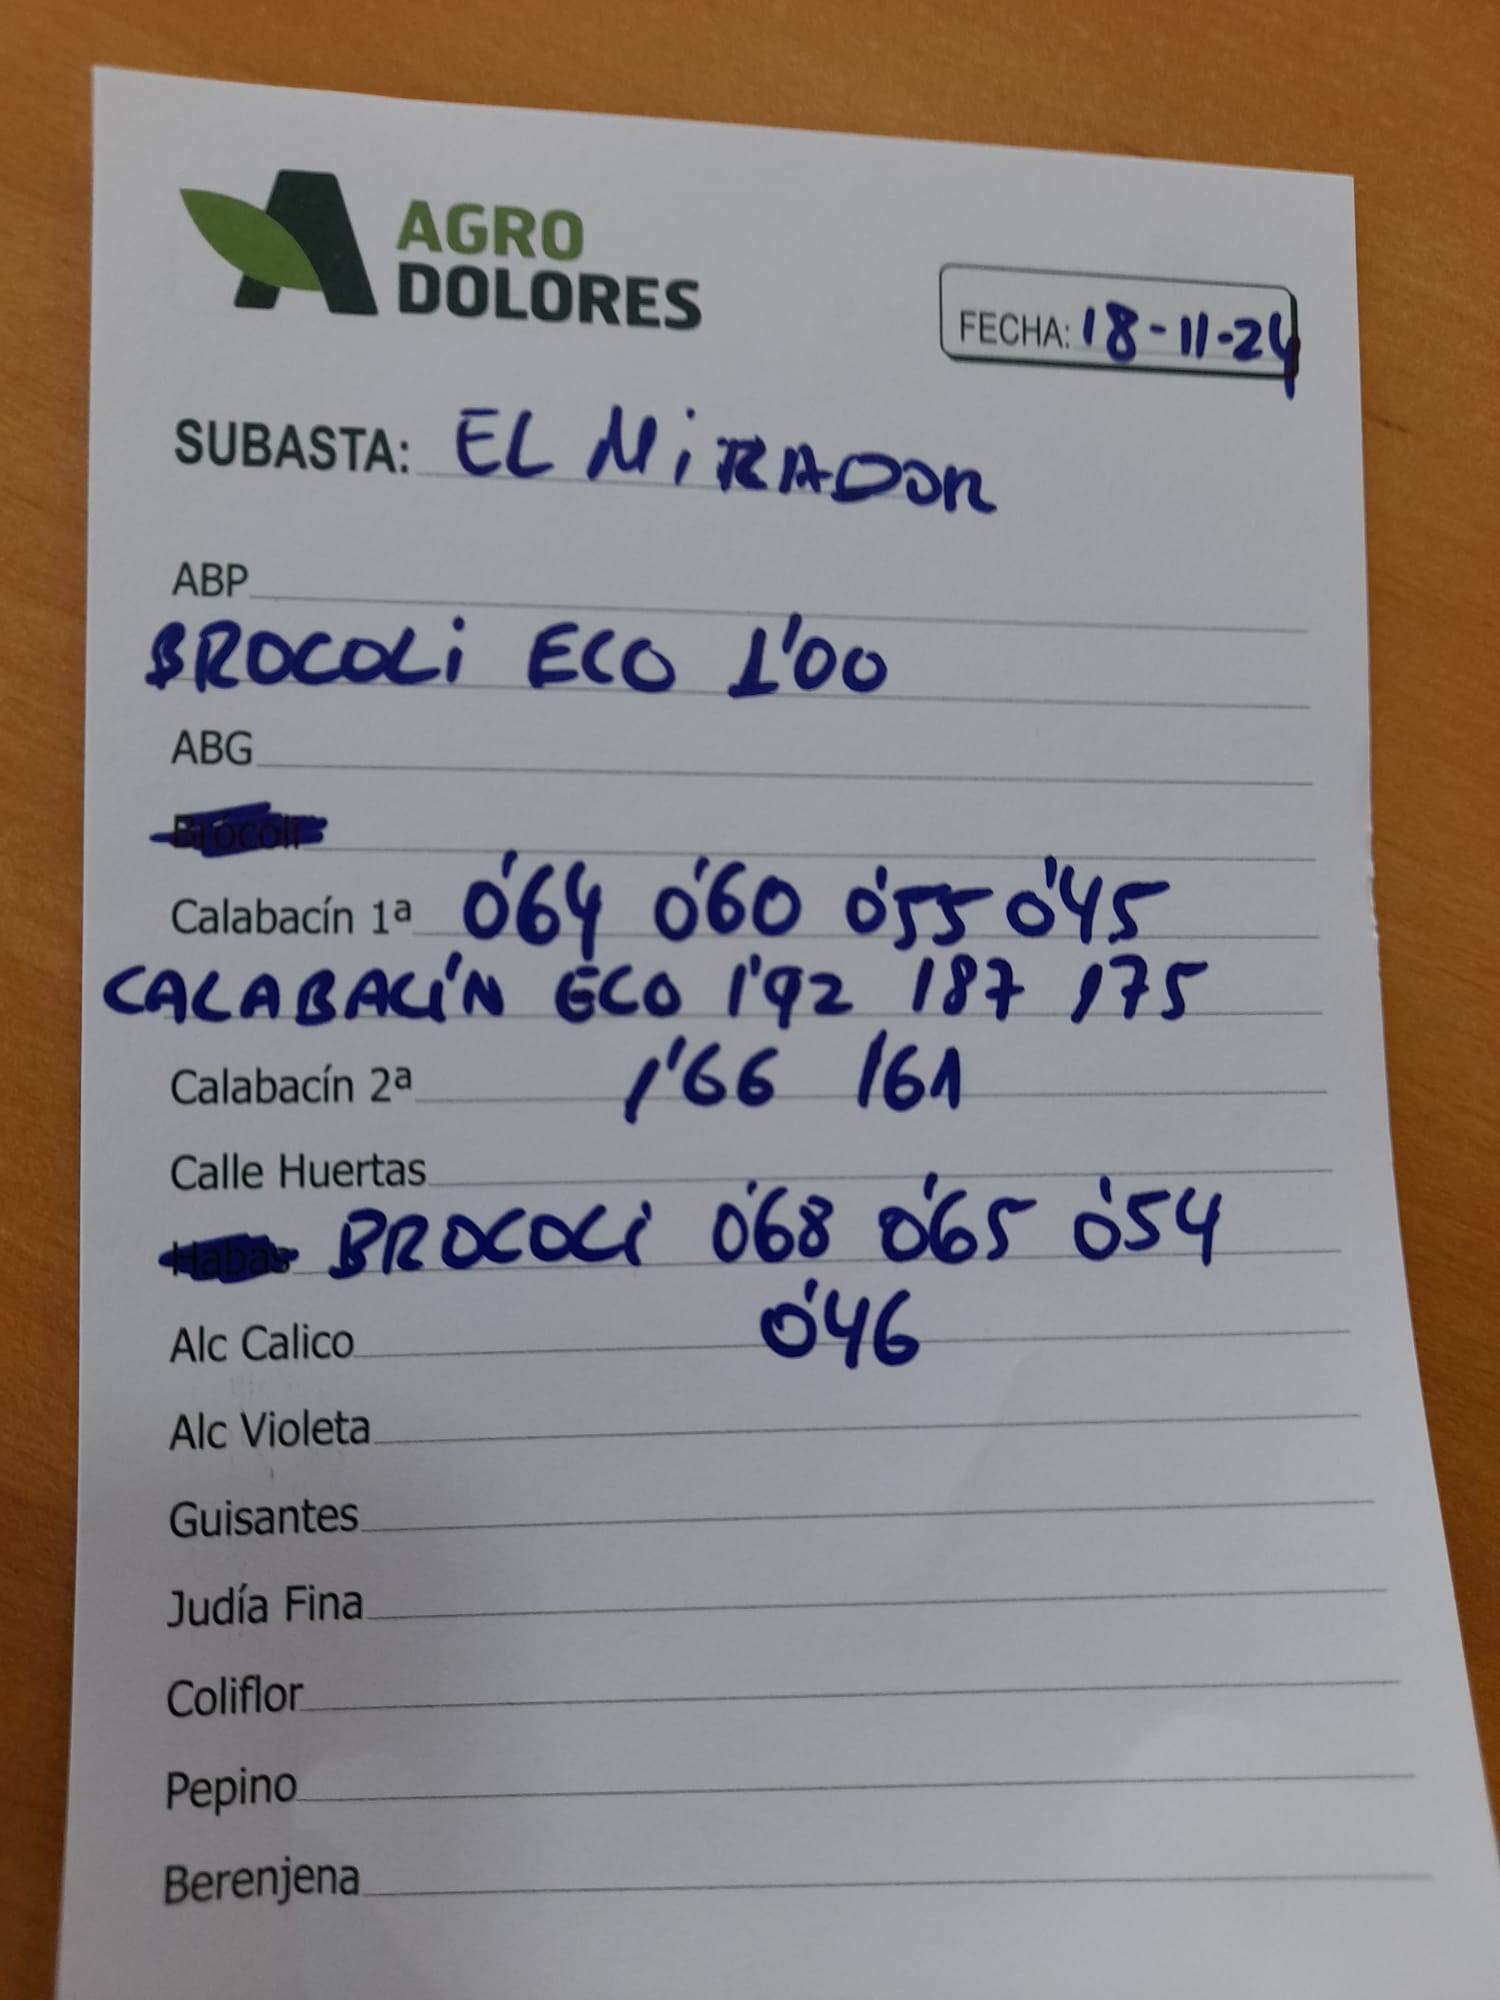 AGRO
DOLORES
FECHA: 18-11-24
SUBASTA: EL MiRADOR
ABP
BROCOLi ECO 1'00
ABG
Brócoli
Calabacín 1ª 0'64 0'60 0'55 0'45
CALABACÍN ECO 1'92 187 175
Calabacín 2ª 1'66 161
Calle Huertas
Habas BROCOLi 0'68 0'65 0'54
Alc Calico 0'46
Alc Violeta
Guisantes
Judía Fina
Coliflor
Pepino
Berenjena